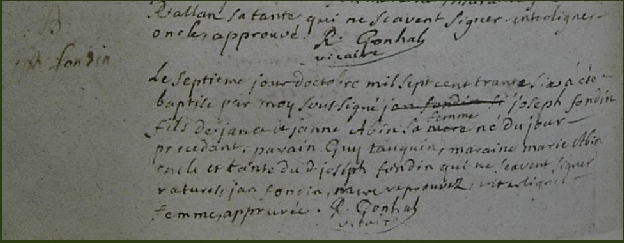 Ballan sa tante qui ne scavent signer. interligne
oncle, approuvé. R. Gonhal
vicaire
fondin
Le septieme jour doctobre mil sept cent trante six a été
baptise par moy soussigné jan fondin fi joseph fondin
femme
fils de jan et de janne Abin sa mere né du jour
precedant, parain Guy tauquin, maraine marie Abin
oncle et tante du d joseph fondin qui ne scavent signer
ratures, jan fondin, mere reprouvez, interligne
femme, approuvée. R. Gonhal
vicaire